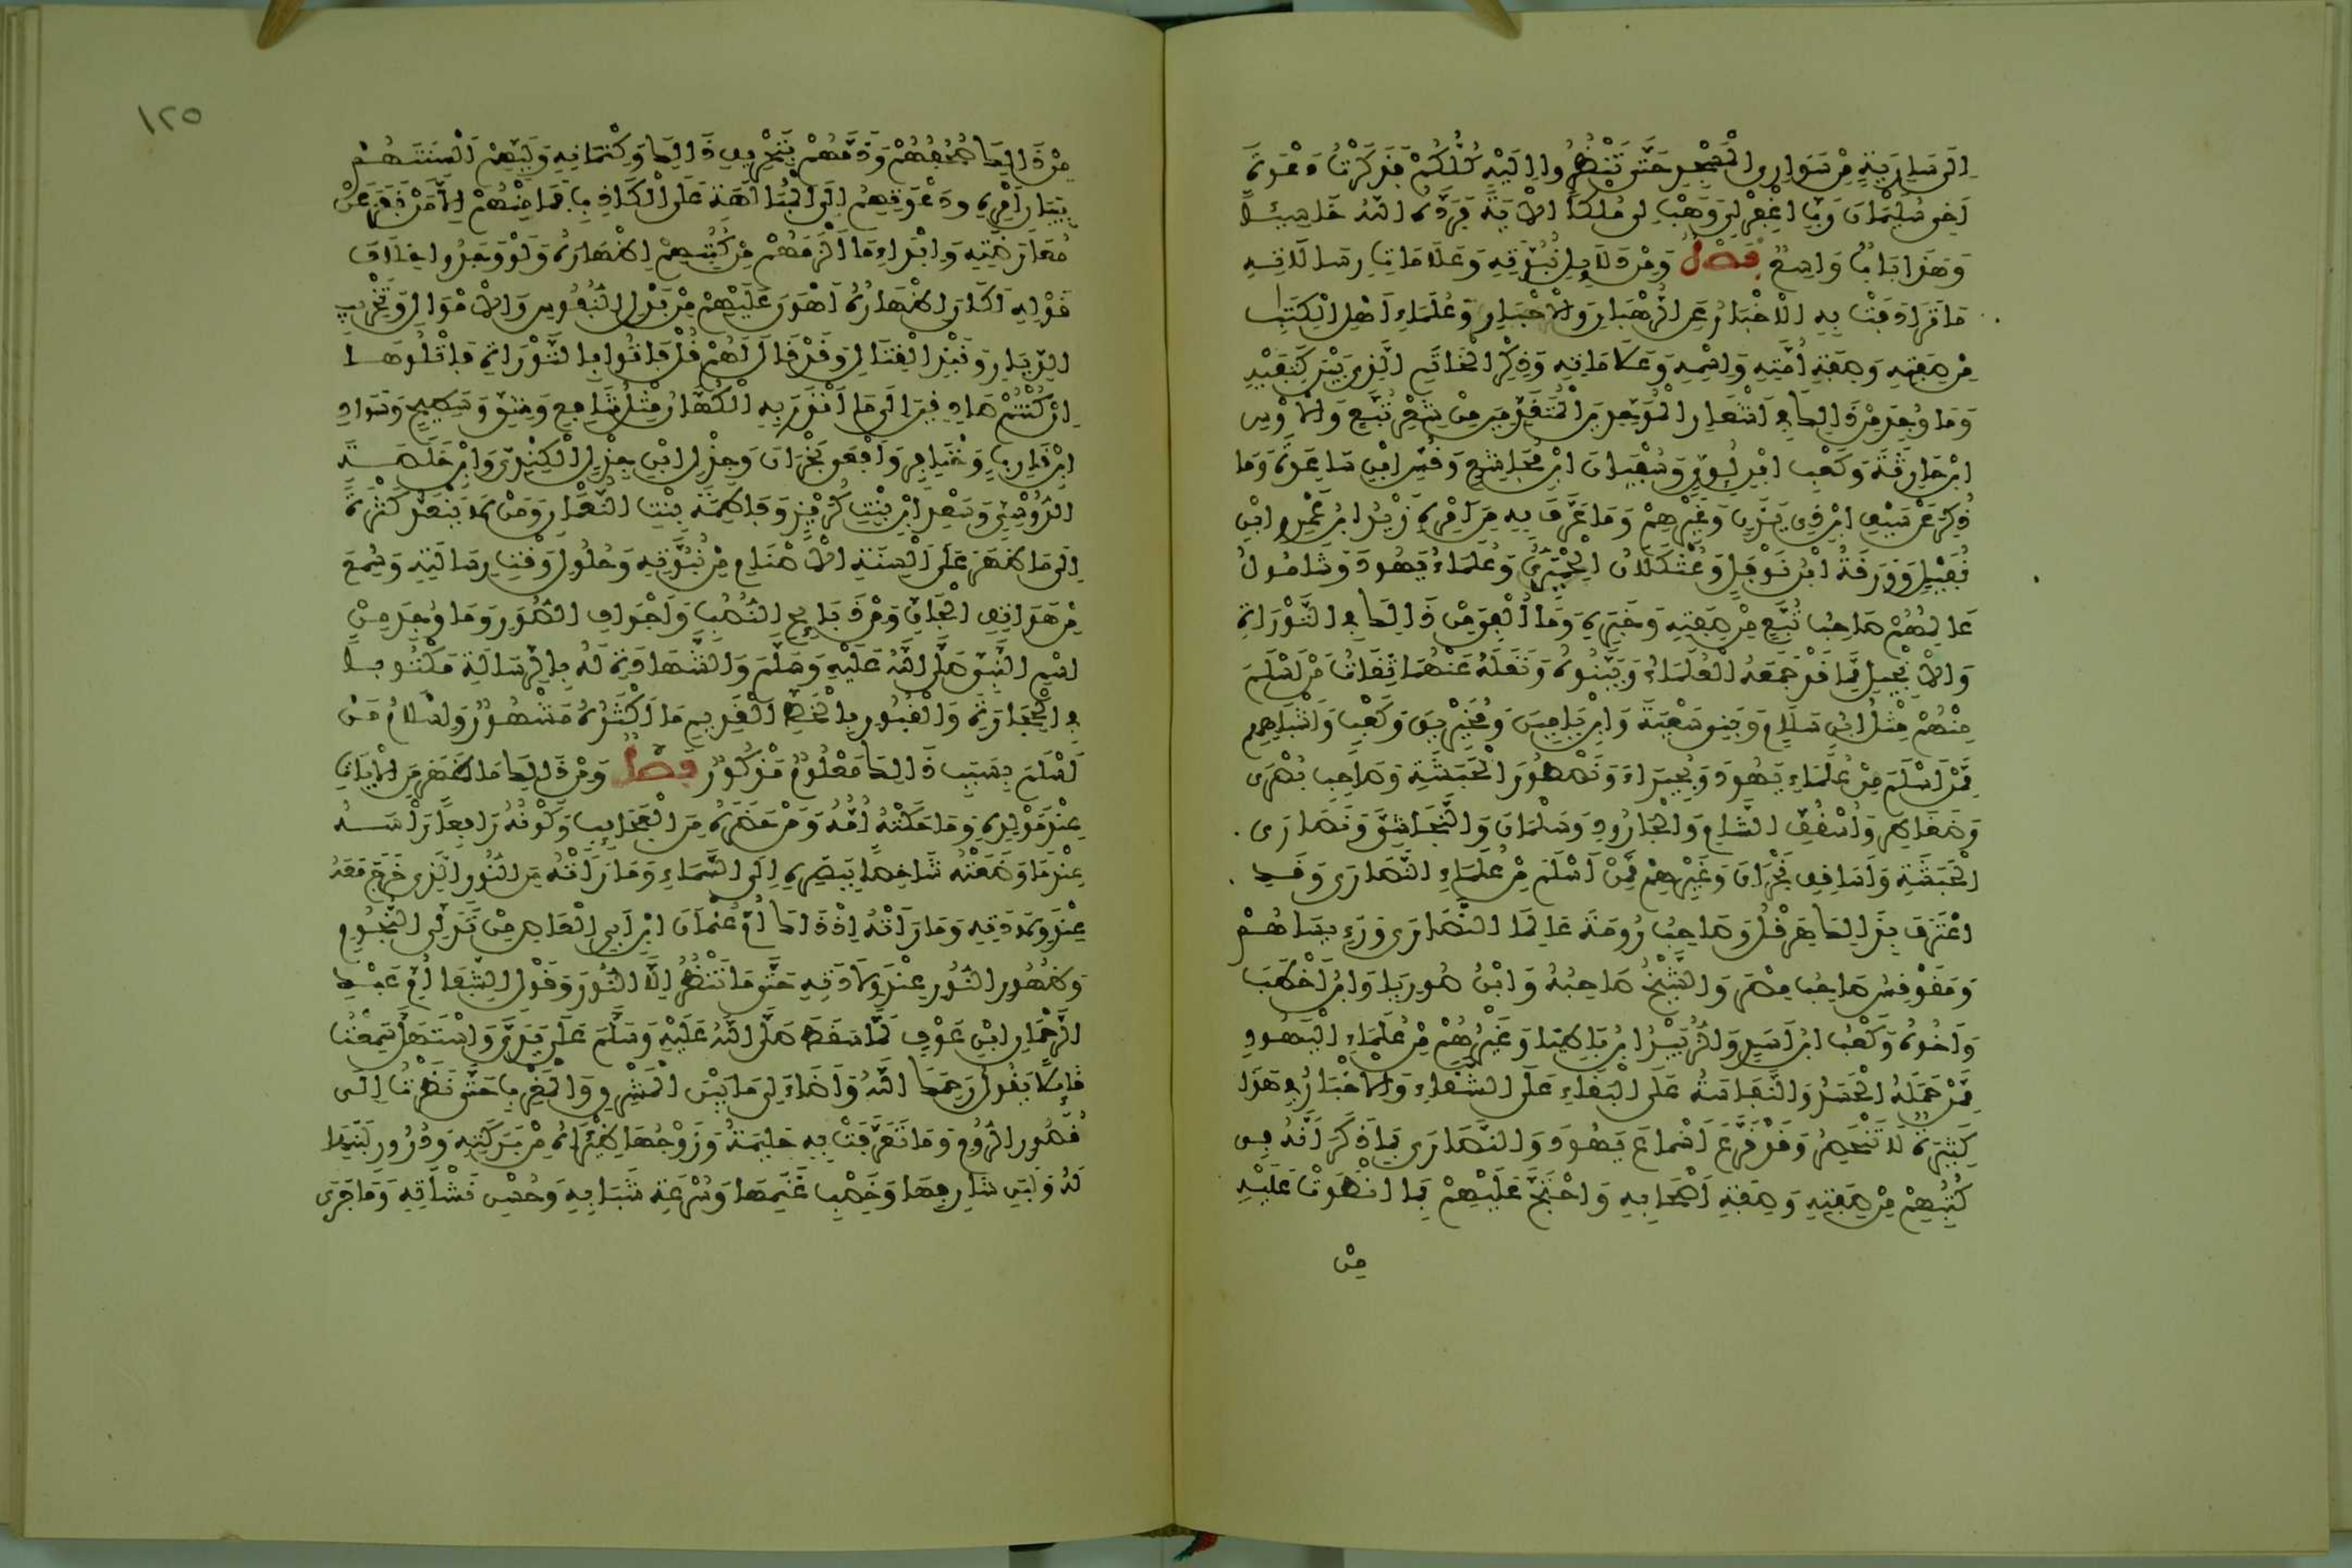 الى سارية من سواري المسجد حتى تنظروا اليه كلكم فذكرت دعوة
اخي سليمان رب اغفر لي وهب لي ملكا الاية فرده الله خاسئا
وهذا باب واسع فصل ومن دلايل نبوته وعلامات رسالاته
ما ترادفت به الاخبار عن الرهبان والاحبار وعلماء اهل الكتب
من صفته وصفة امته واسمه وعلاماته وذكر الخاتم الذي بين كتفيه
وما وجد من ذلك في اشعار الموحدين المتقدمين من شعر تبع والاوس
ابن حارثة وكعب ابن لؤي وسفيان ابن مجاشع وقس ابن ساعدة وما
ذكر عن سيف ابن ذي يزن وغيرهم وما عرف به من امره زيد ابن عمرو ابن
نفيل وورقة ابن نوفل وعثكلان الحميري وعلماء يهود وشامول
عالمهم صاحب تبع من صفته وخبره وما الفي من ذلك في التوراة
والانجيل مما قد جمعه العلماء وبينوه ونقله عنهما ثقات من اسلم
منهم مثل ابن سلام وبني سعية وابن يامين ومخيريق وكعب واشباههم
ممن اسلم من علماء يهود وبحيراء ونسطور الحبشة وصاحب بصرى
وضغاطر واسقف الشام والجارود وسلمان والنجاشي ونصارى
الحبشة واساقف نجران وغيرهم ممن اسلم من علماء النصارى وقد
اعترف بذلك هرقل وصاحب رومة عالما النصارى ورءيساهم
ومقوقس صاحب مصر والشيخ صاحبه وابن صوريا وابن اخطب
واخوه وكعب ابن اسد والزبير ابن باطيا وغيرهم من علماء اليهود
ممن حمله الحسد والنفاسة على البقاء على الشقاء والاخبار في هذا
كثيرة لا تنحصر وقد قرع اسماع يهود والنصارى بما ذكر انه في
كتبهم من صفته وصفة اصحابه واحتج عليهم بما انطوت عليه
من
١٢٥
من ذلك صحفهم وذمهم بتحريف ذلك وكتمانه وليهم السنتهم
ببيان امره ودعوتهم الى المباهلة على الكاذب فما منهم الا من نفر عن
معارضته وابداء ما الزمهم من كتبهم اظهاره ولو وجدوا خلاف
قوله لكان اظهاره اهون عليهم من بذل النفوس والاموال وتخريب
الديار ونبذ القتال وقد قال لهم قل فاتوا بالتوراة فاتلوها
ان كنتم صادقين الى ما انذر به الكهان مثل شافع وشق وسطيح وسواد
ابن قارب وخنافر وافعى نجران وجذل ابن جذل الكندي وابن خلصة
الدوسي وسعد ابن بنت كريز وفاطمة بنت النعمان ومن لا ينعد كثرة
الى ما ظهر على السنة الاصنام من نبوته وحلول وقت رسالته وسمع
من هواتف الجان ومن ذبايح النصب واجواف الصور وما وجد من
اسم النبي صلى الله عليه وسلم والشهادة له بالرسالة مكتوبا
في الحجارة والقبور بالخط القديم ما اكثره مشهور واسلام من
اسلم بسبب ذلك معلوم مذكور فصل ومن ذلك ما ظهر من الايات
عند مولده وما حكته امه ومن حضره من العجايب وكونه رافعا راسه
عند ما وضعته شاخصا ببصره الى السماء وما راته من النور الذي خرج معه
عند ولادته وما راته اذ ذاك ام عثمان ابن ابي العاص من تدلي النجوم
وظهور النور عند ولادته حتى ما تنظر الا النور وقول الشفا ام عبد
الرحمان ابن عوف لما سقط صلى الله عليه وسلم على يدي واستهل سمعت
قايلا يقول رحمك الله واضاء لي ما بين المشرق والمغرب حتى نظرت الى
قصور الروم وما تعرفت به حليمة وزوجها ظئراه من بركته ودرور لبنها
له ولبن شارفها وخصب غنمها وسرعة شبابه وحسن نشاته وما جرى